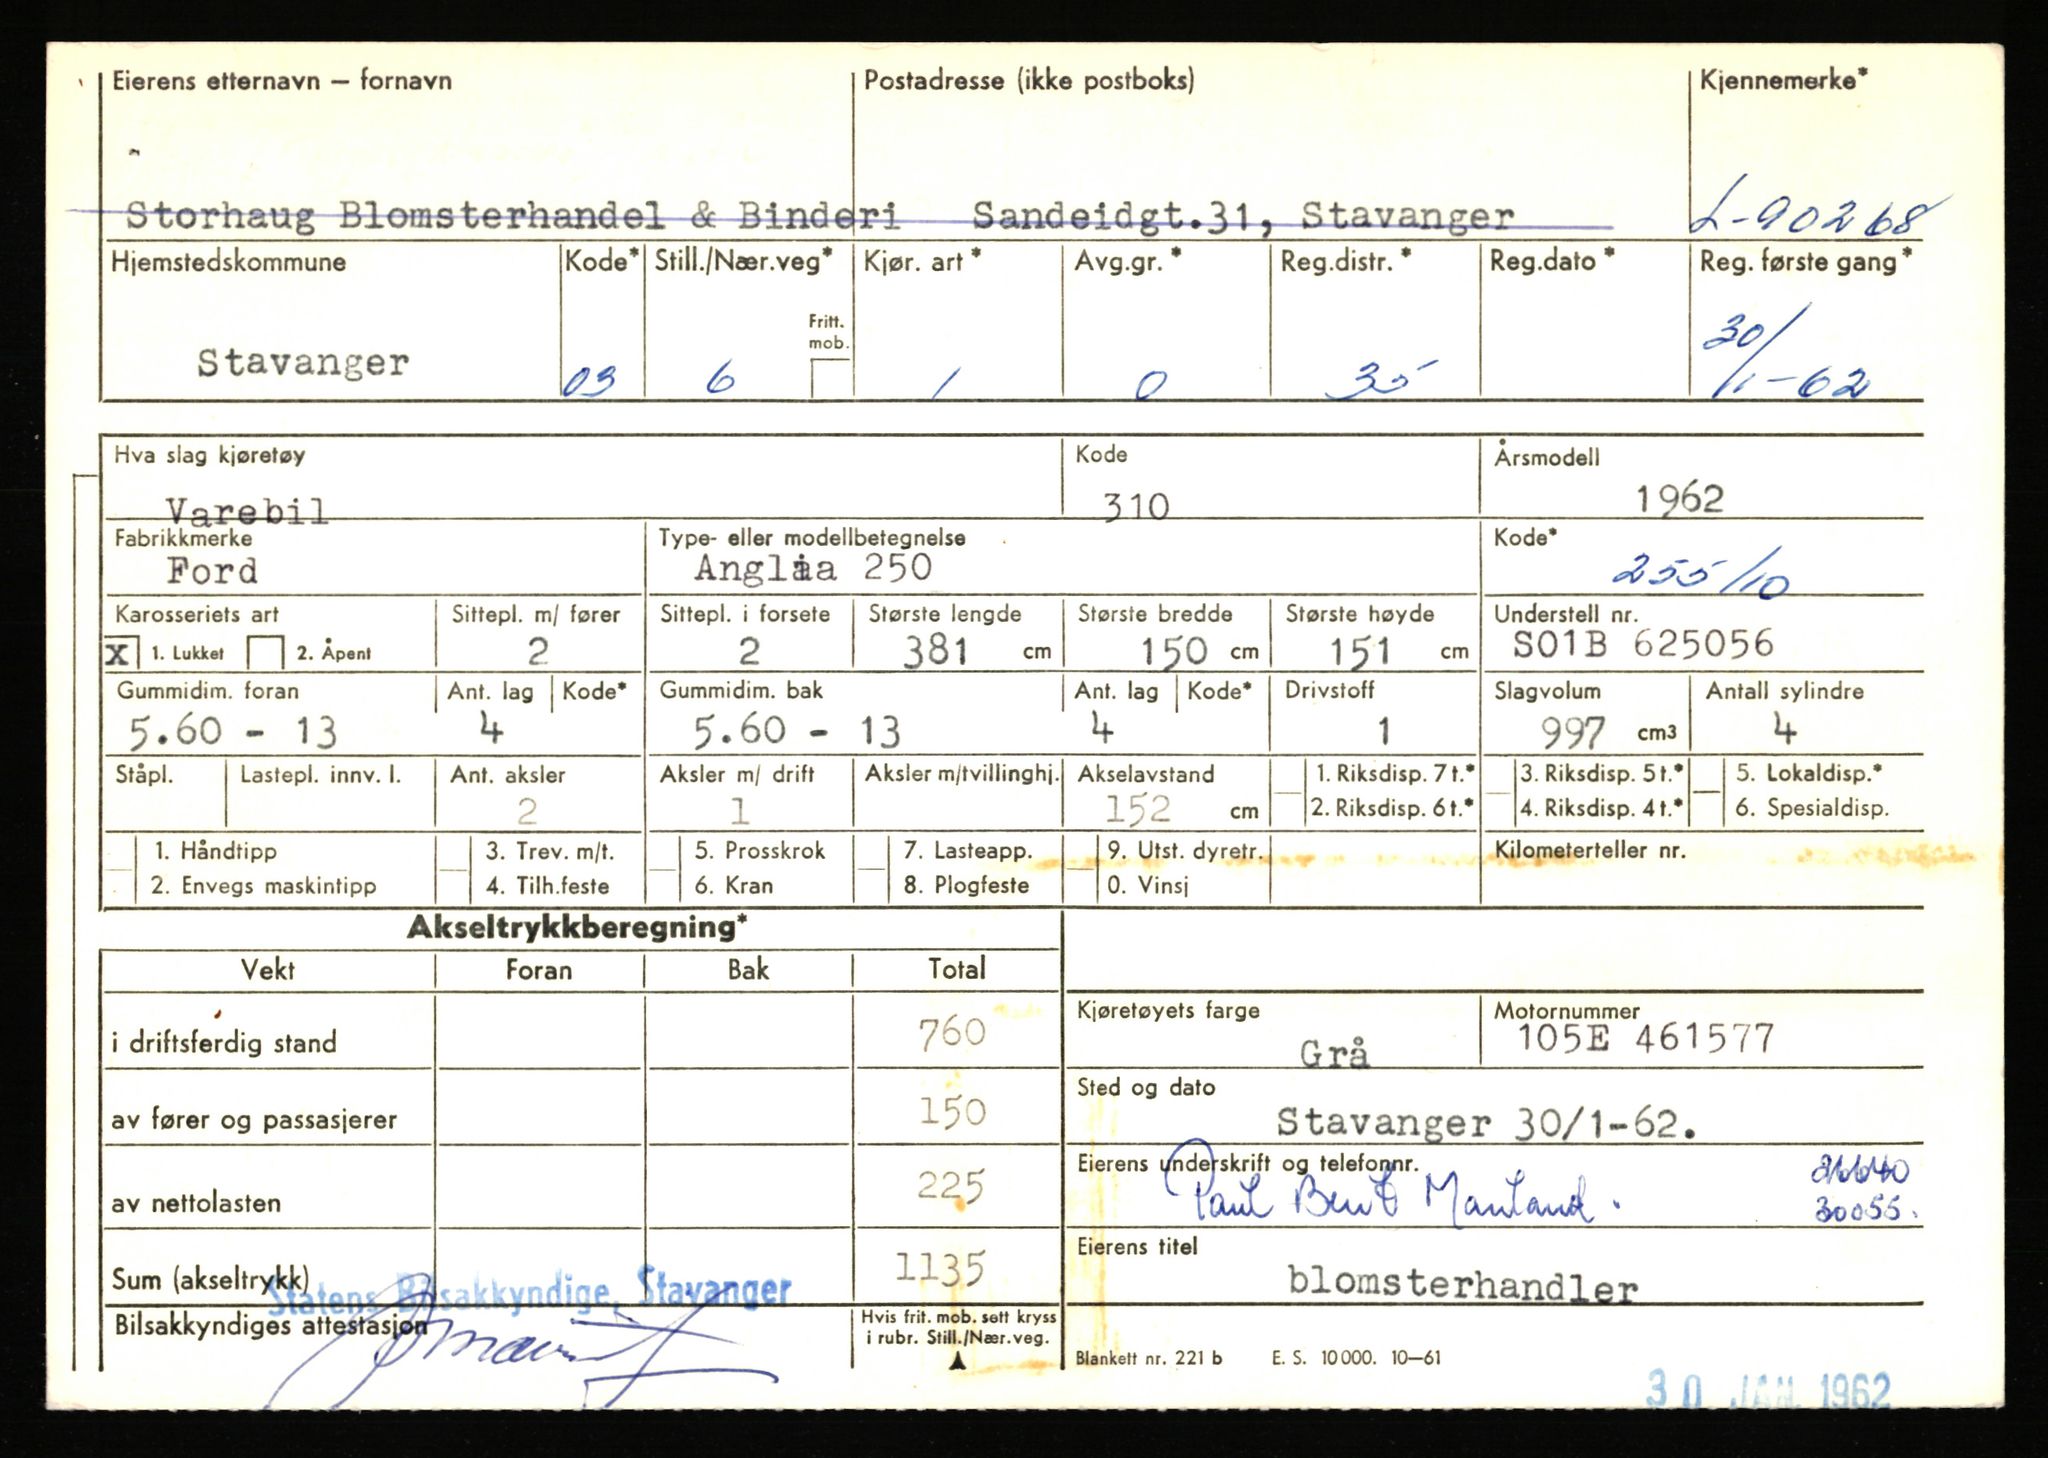 Eierens etternavn – fornavn Postadresse (ikke postboks) Kjennemerke*
Storhaug Blomsterhandel & Binderi Sandeidgt.31, Stavanger L-90268
Hjemstedskommune Kode* Still./Nær.veg* Kjør. art * Avg.gr. * Reg.distr. * Reg.dato * Reg. første gang *
Fritt. mob.
Stavanger 03 6 1 0 35 30/1-62
Hva slag kjøretøy Kode Årsmodell
Varebil 310 1962
Fabrikkmerke Type- eller modellbetegnelse Kode*
Ford Anglia 250 255/10
Karosseriets art Sittepl. m/ fører Sittepl. i forsete Største lengde Største bredde Største høyde Understell nr.
X 1. Lukket 2. Åpent 2 2 381 cm 150 cm 151 cm S01B 625056
Gummidim. foran Ant. lag Kode* Gummidim. bak Ant. lag Kode* Drivstoff Slagvolum Antall sylindre
5.60 - 13 4 5.60 - 13 4 1 997 cm3 4
Ståpl. Lastepl. innv. l. Ant. aksler Aksler m/ drift Aksler m/tvillinghj. Akselavstand 1. Riksdisp. 7 t.* 3. Riksdisp. 5 t.* 5. Lokaldisp.*
2 1 152 cm 2. Riksdisp. 6 t.* 4. Riksdisp. 4 t.* 6. Spesialdisp.
1. Håndtipp 3. Trev. m/t. 5. Prosskrok 7. Lasteapp. 9. Utst. dyretr. Kilometerteller nr.
2. Envegs maskintipp 4. Tilh.feste 6. Kran 8. Plogfeste 0. Vinsj
Akseltrykkberegning*
Vekt Foran Bak Total
i driftsferdig stand 760
Kjøretøyets farge Motornummer
Grå 105E 461577
av fører og passasjerer 150
Sted og dato
Stavanger 30/1-62.
av nettolasten 225
Eierens underskrift og telefonnr.
Paul Bent Mauland. 30055.
Sum (akseltrykk) 1135
Eierens titel
blomsterhandler
Statens Bilsakkyndige, Stavanger
Bilsakkyndiges attestasjon
Hvis frit. mob. sett kryss
i rubr. Still./Nær.veg.
Blankett nr. 221 b E. S. 10 000. 10–61
30 JAN. 1962